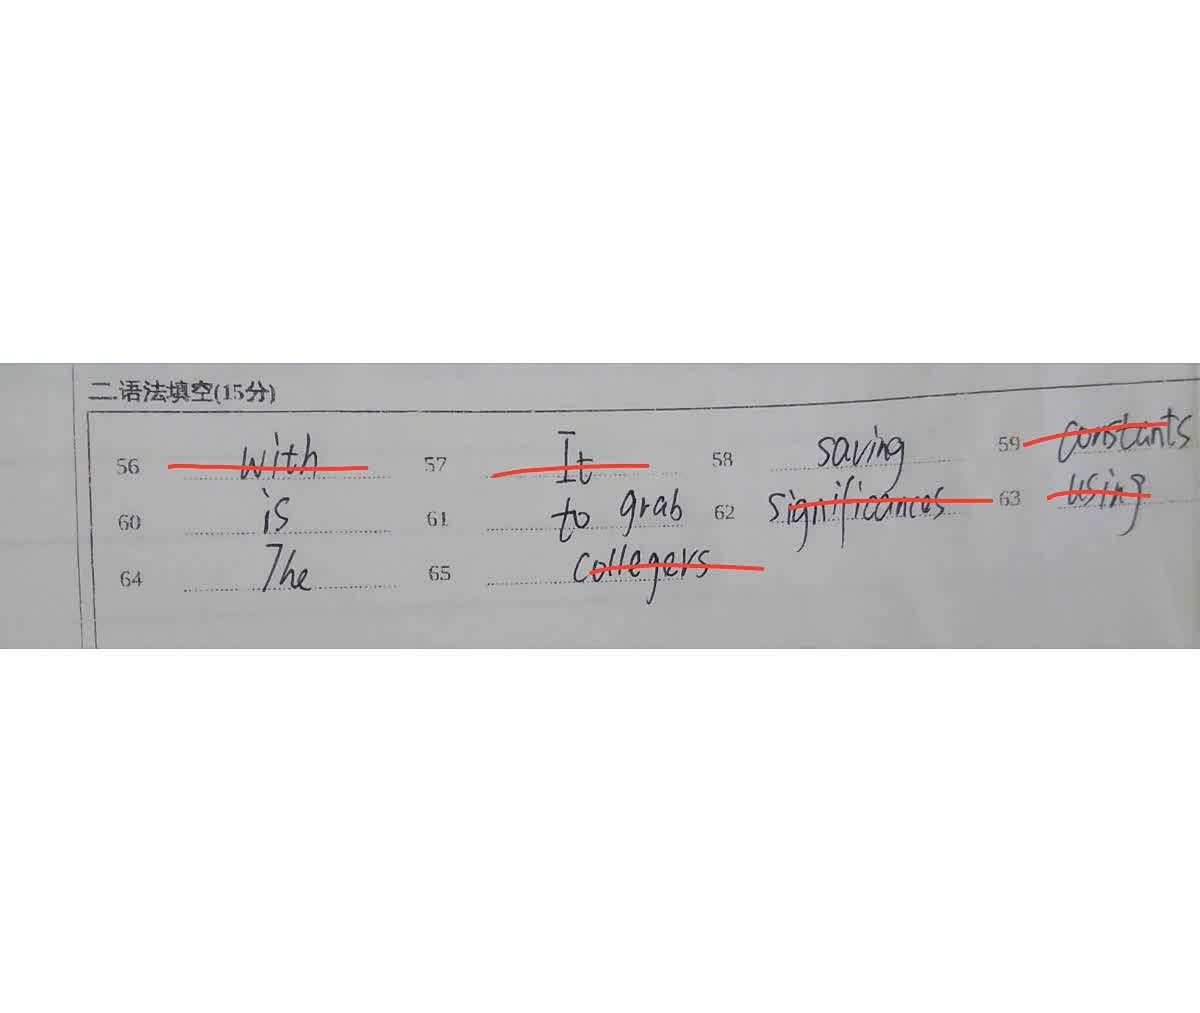 二.语法填空(15分)
56 with 57 It 58 saving 59 constants
60 is 61 to grab 62 significances 63 using
64 The 65 collegers